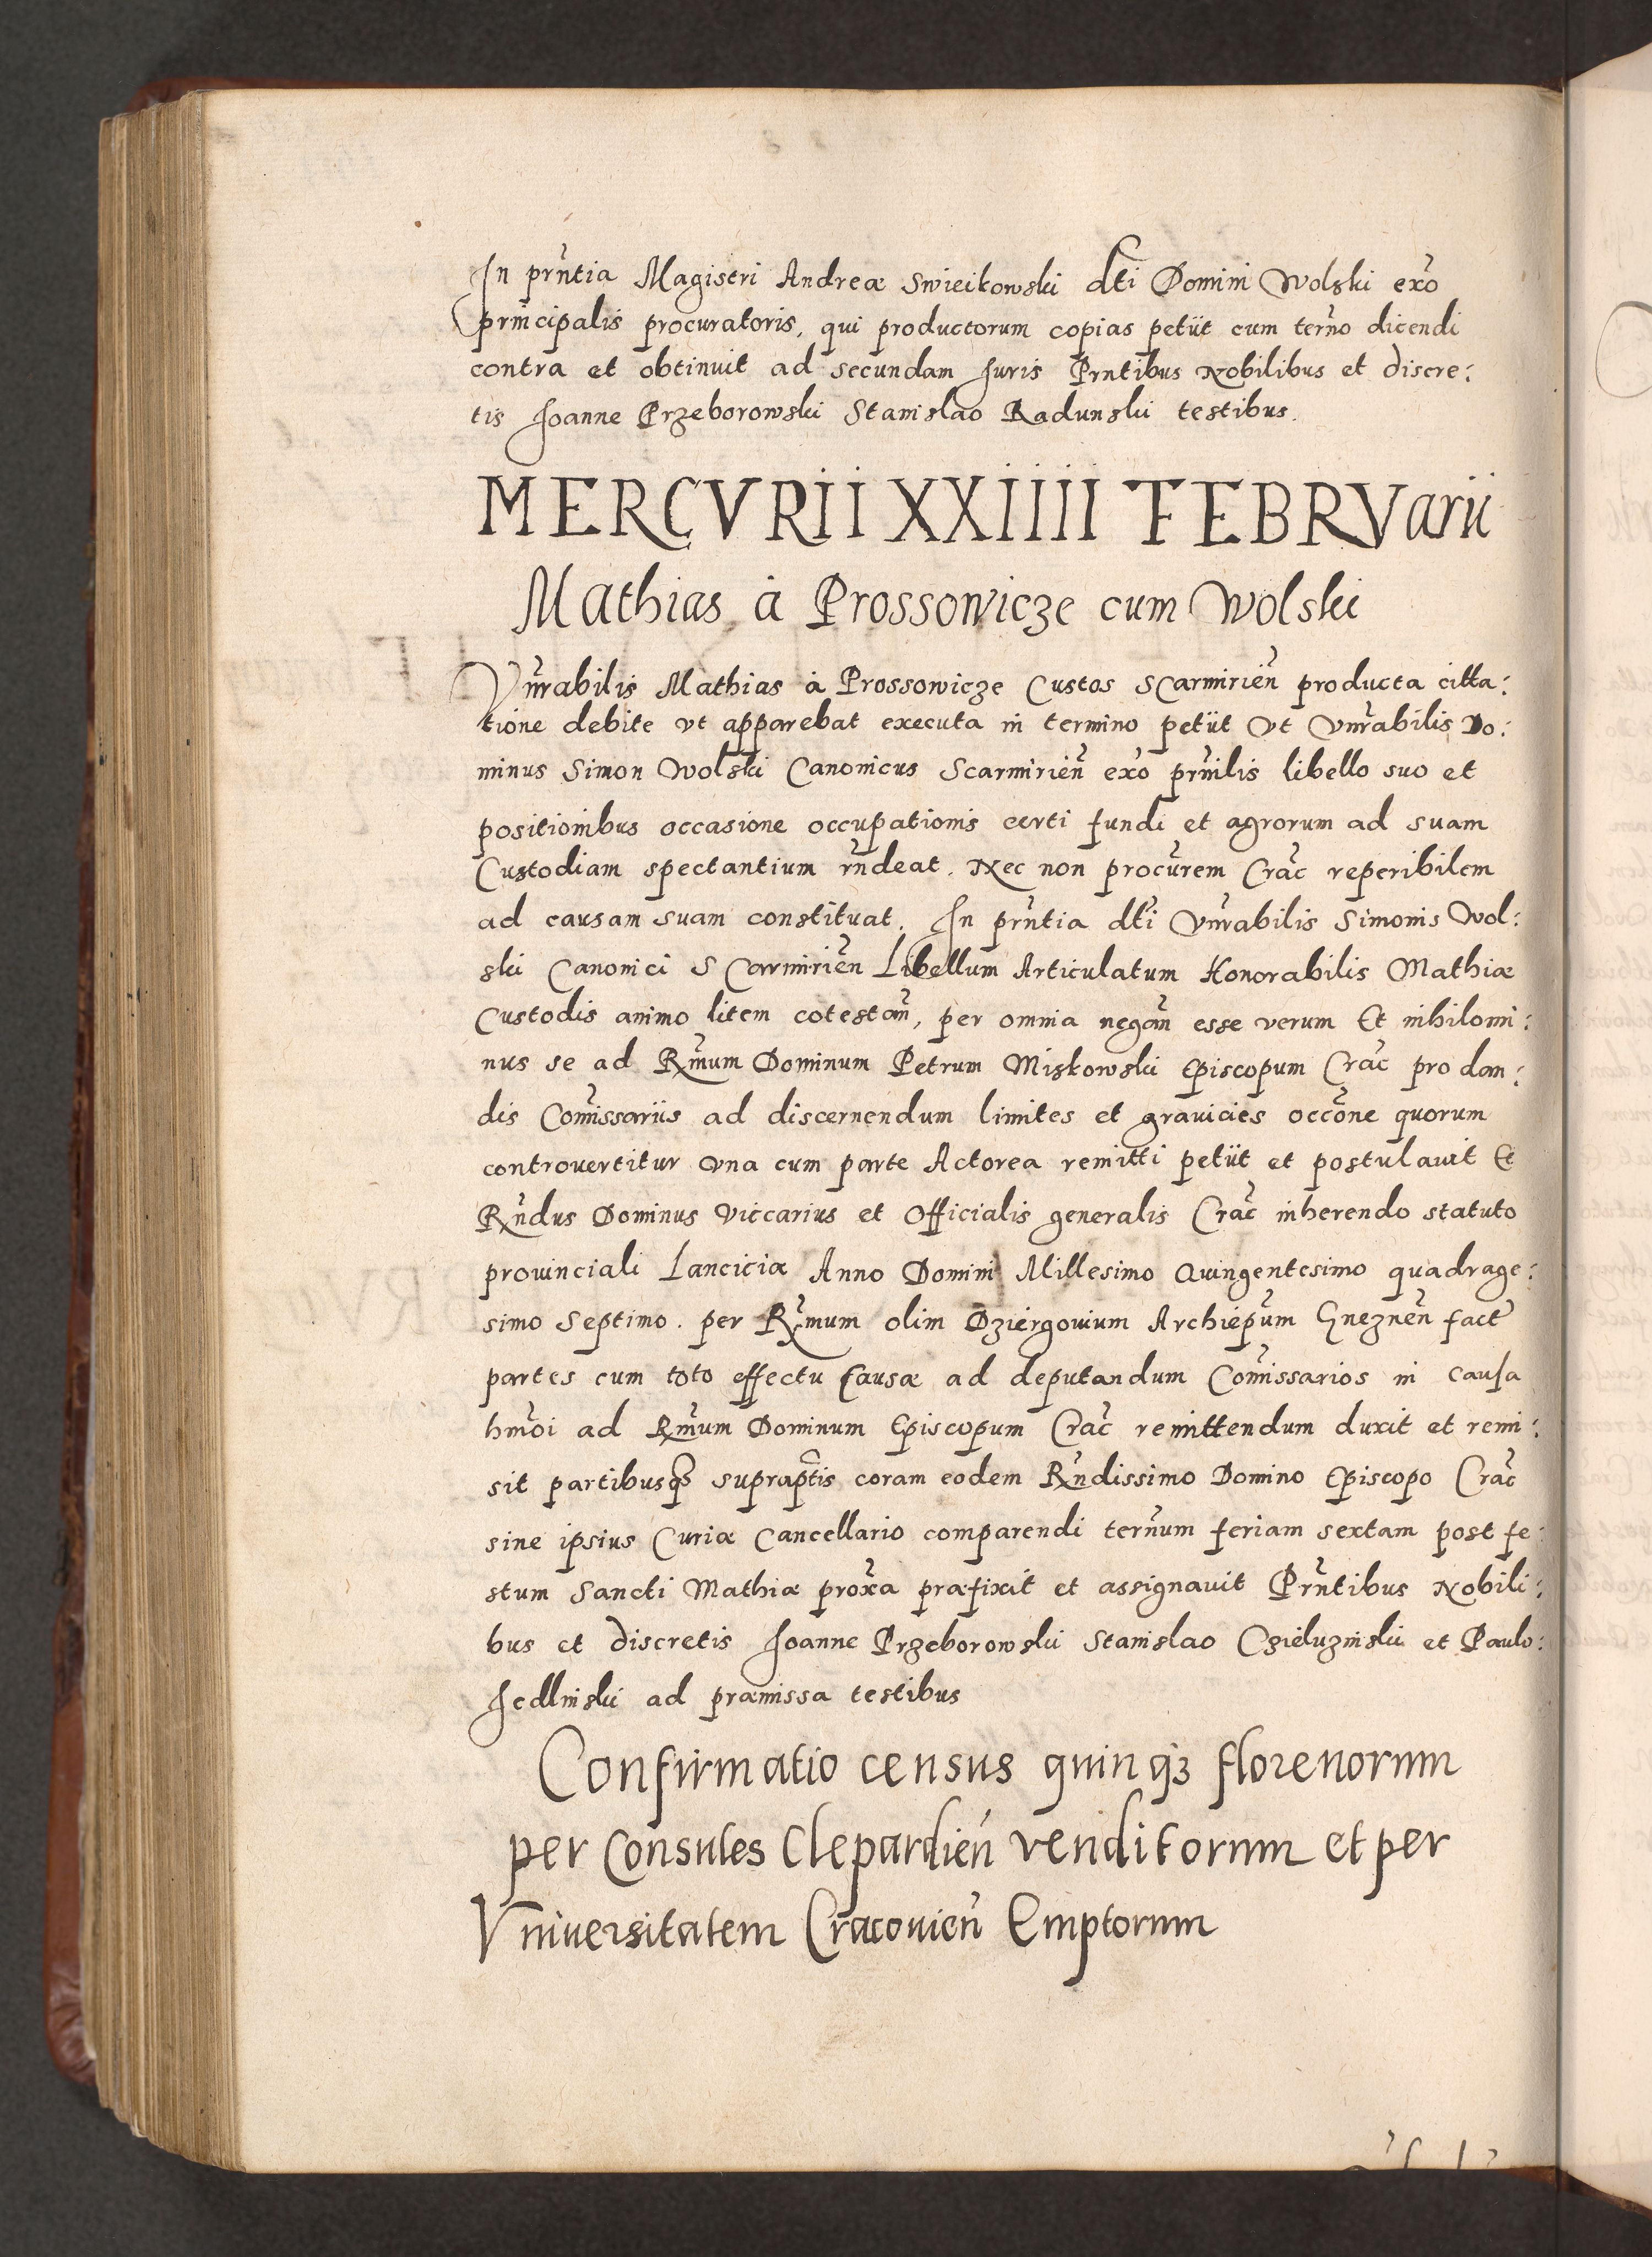 In prñtia Magistri Andreæ Swieikowski dti Domini Wolski exõ
principalis procuratoris, qui productorum copias petiit cum terño dicendi
contra et obtinuit ad secundam Iuris Prntibus Nobilibus et discre:
tis Joanne Przeborowski Stanislao Radunski testibus.
MERCVRII XXIIII FEBRVarii
Mathias à Prossowicze cum Wolski
Vñrabilis Mathias à Prossowicze Custos SCarmirieñ producta citta:
tione debite vt apparebat executa in termino petiit vt Vñrabilis Do:
minus Simon Wolski Canonicus Scarmirieñ exõ prñilis libello suo et
positionibus occasione occupationis certi fundi et agrorum ad suam
Custodiam spectantium rñdeat. Nec non procũrem Crac̃ reperibilem
ad causam suam constituat. In prñtia dti Vñrabilis Simonis Wol:
ski Canonici SCarmirieñ Libellum Articulatum Honorabilis Mathiæ
Custodis animo litem cotestañ, per omnia negañ esse verum Et nihilomi:
nus se ad Rm̃um Dominum Petrum Miskowski Episcopum Crac̃ pro dan:
dis Com̃issariis ad discernendum limites et gravicies occõne quorum
controvertitur vna cum parte Actorea remitti petiit et postulauit Et
Rñdus Dominus Viccarius et Officialis generalis Crac̃ inherendo statuto
prouinciali Lanciciæ Anno Domini Millesimo Quingentesimo quadrage:
simo Septimo. per Rm̃um olim Dziergouium Archiepũm Gnezneñ fact̃
partes cum toto effectu Causæ ad deputandum Com̃issarios in causa
hm̃oi ad Rm̃um Dominum Episcopum Crac̃ remittendum duxit et remi:
sit partibusq̃ supraptis coram eodem Rñdissimo Domino Episcopo Crac̃
sine ipsius Curiæ Cancellario comparendi terñum feriam sextam post fe:
stum Sancti Mathiæ prox̃a præfixit et assignauit Prñtibus Nobili:
bus et discretis Joanne Przeborowski Stanislao Czieluzinski et Paulo:
Jedlinski ad præmissa testibus
Confirmatio census quinqȝ florenorum
per Consules Clepardieñ venditorum et per
Vniversitatem Cracouieñ Emptorum